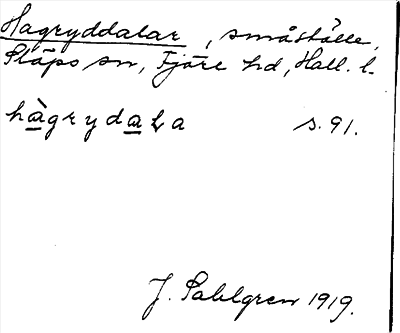 Hagryddalar, småställe,
Släps sn, Fjäre hd, Hall. l.
hàgrydaɫa s. 91.
J. Sahlgren 1919.